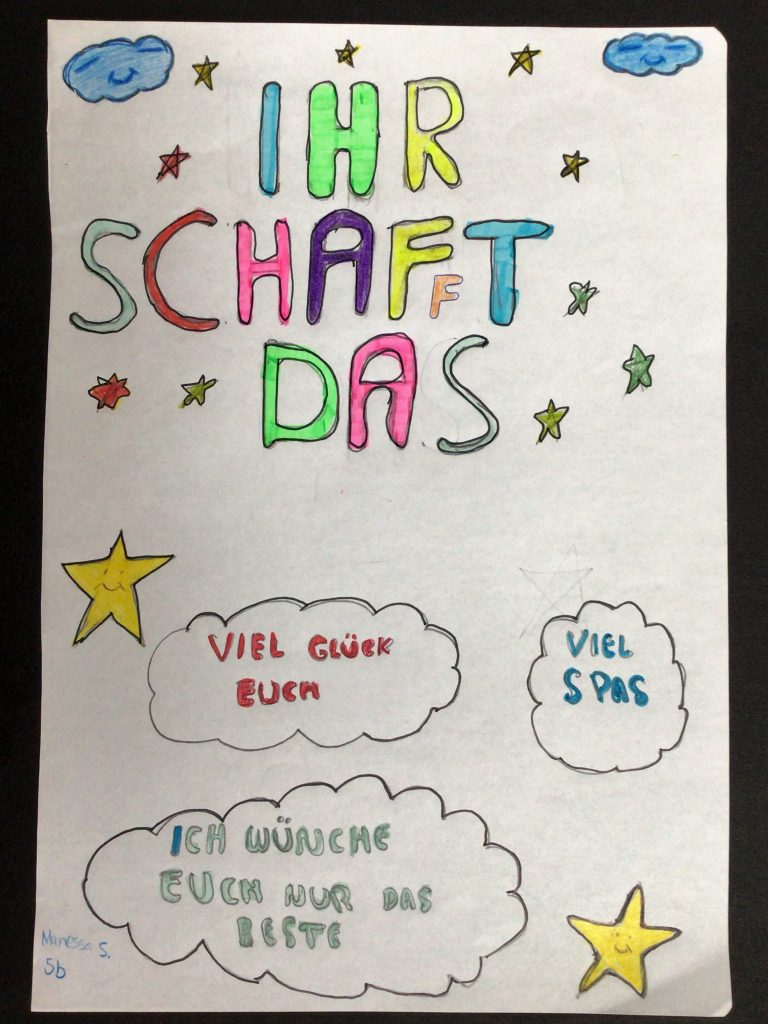 IHR
SCHAFFT
DAS
VIEL GLÜCK
EUCH
VIEL
SPAS
ICH WÜNCHE
EUCH NUR DAS
BESTE
S.
5b